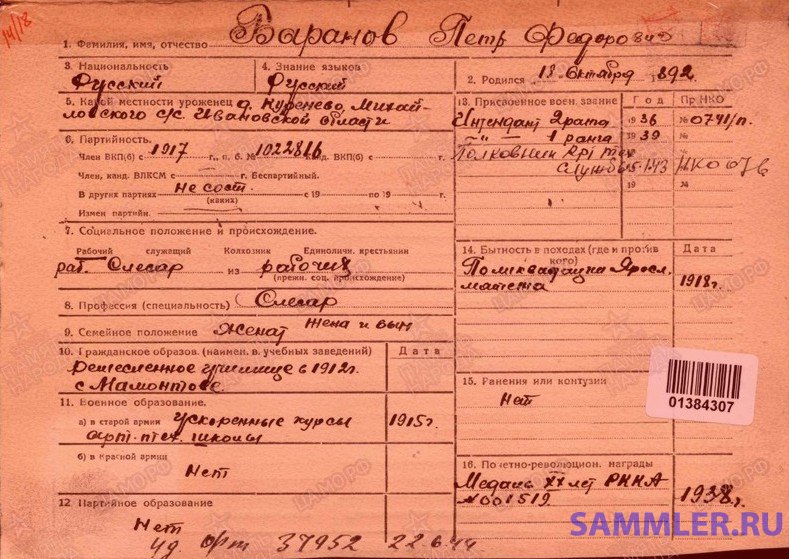 14/18
1. Фамилия, имя, отчество Баранов Петр Федорович
3. Национальность
Русский
4. Знание языков
Русский
2. Родился 18 Октября 892
5. Какой местности уроженец д. Куренево, Михай-
ловского с/с Ивановской области
6. Партийность.
Член ВКП(б) с 1917 г., п. б. № 1022816 Канд. ВКП(б) с г.
Член, канд. ВЛКСМ с г. Беспартийный.
В других партиях не сост. с 19 по 19 г.
(каких)
Измен. партийн.
13. Присвоенное воен. звание
Год
Пр. НКО
Интендант 2 ранга 1936 № 0741/п.
" " 1 ранга 1939 №
Полковник
службы 5.1.43 НКО 076
19 №
7. Социальное положение и происхождение.
Рабочий служащий Колхозник Единоличн. крестьянин
раб. Слесар из рабочих
(прежн. соц. происхождение)
8. Профессия (специальность) Слесар
9. Семейное положение Женат Жена и сын
14. Бытность в походах (где и против кого)
Дата
По ликвидации Яросл.
мятежа
1918 г.
10. Гражданское образов. (наимен. в. учебных заведений)
Дата
Ремесленное училище в 1912 г.
с Мамонтове
11. Военное образование.
а) в старой армии ускоренные курсы
арт. тех. школы
1915 г.
б) в Красной армии
Нет
12 Партийное образование
Нет
15. Ранения или контузии
Нет
01384307
16. Почетно-революцион. награды
Медаль XX лет РККА
№ 001519
1938 г.
уд. орт 37952 22 6 44
ЦАМО.РФ
SAMMLER.RU